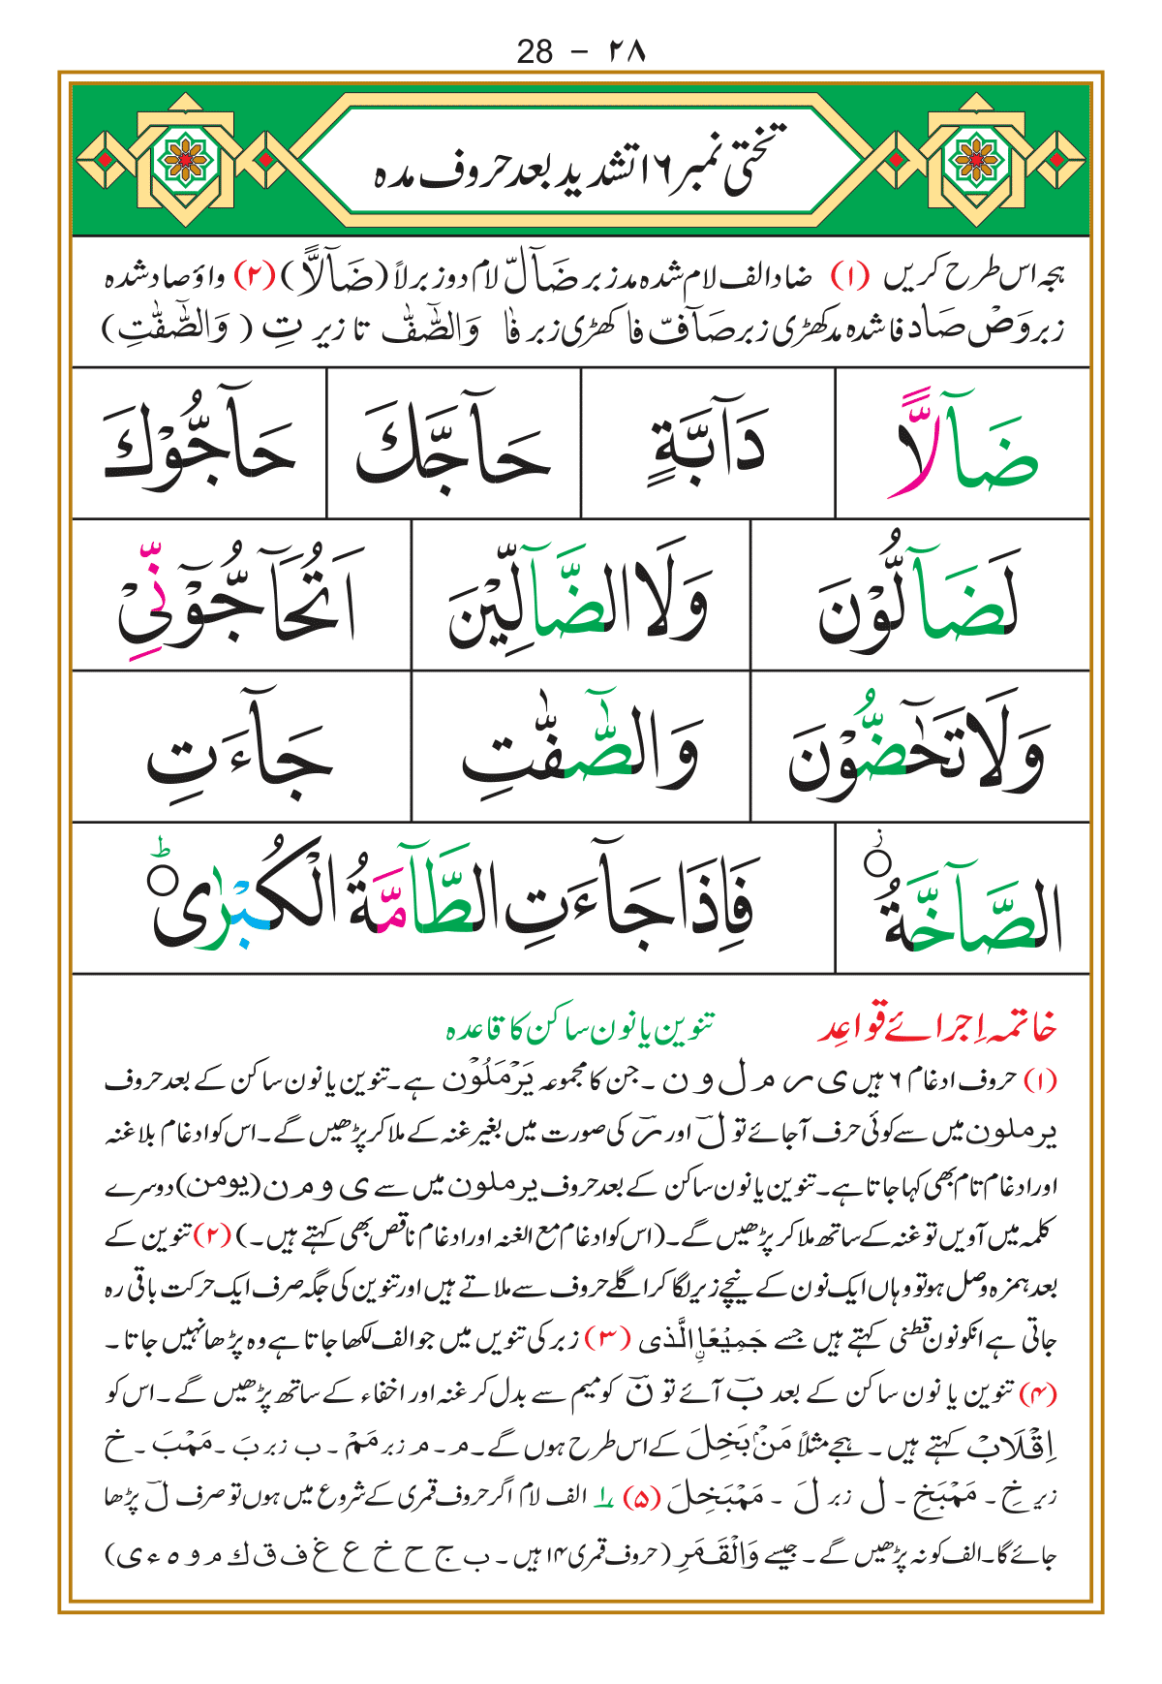 28 – ٢٨
تختی نمبر ۱۶ تشدید بعد حروف مدہ
ہجہ اس طرح کریں (۱) ضاد الف لام شدہ مد زبر ضَآلّ لام دوزبر لاً (ضَآلًّا) (۲) واؤ صاد شدہ
زبر وَصْ صَاد فا شدہ مد کھڑی زبر صَآفّ فا کھڑی زبر فٰا وَالصّٰٓفّٰ تا زیر تِ ( وَالصّٰٓفّٰتِ )
ضَآلًّا دَآبَّةٍ حَآجَّكَ حَآجُّوْكَ
لَضَآلُّوْنَ وَلَا الضَّآلِّيْنَ اَتُحَآجُّوْٓنِّيْ
وَلَا تَحٰٓضُّوْنَ وَالصّٰٓفّٰتِ جَآءَتِ
الصَّآخَّةُ ۚ فَاِذَا جَآءَتِ الطَّآمَّةُ الْكُبْرٰى ؕ
خاتمہ اِجرائے قواعِد تنوین یا نون ساکن کا قاعدہ
(۱) حروف ادغام ۶ ہیں ی ر م ل و ن ۔ جن کا مجموعہ يَرْمَلُوْن ہے۔ تنوین یا نون ساکن کے بعد حروف
یرملون میں سے کوئی حرف آجائے تو لَ اور رَ کی صورت میں بغیر غنہ کے ملا کر پڑھیں گے۔ اس کو ادغام بلا غنہ
اور ادغام تام بھی کہا جاتا ہے۔ تنوین یا نون ساکن کے بعد حروف یرملون میں سے ی و م ن (یومن) دوسرے
کلمہ میں آویں تو غنہ کے ساتھ ملا کر پڑھیں گے۔ (اس کو ادغام مع الغنہ اور ادغام ناقص بھی کہتے ہیں۔) (۲) تنوین کے
بعد ہمزہ وصل ہو تو وہاں ایک نون کے نیچے زیر لگا کر اگلے حروف سے ملاتے ہیں اور تنوین کی جگہ صرف ایک حرکت باقی رہ
جاتی ہے انکو نون قطنی کہتے ہیں جسے جَمِيْعًا ۨالَّذى (۳) زبر کی تنویں میں جو الف لکھا جاتا ہے وہ پڑھا نہیں جاتا ۔
(۴) تنوین یا نون ساکن کے بعد بَ آئے تو نَ کو میم سے بدل کر غنہ اور اخفاء کے ساتھ پڑھیں گے ۔ اس کو
اِقْلَابْ کہتے ہیں ۔ ہجے مثلاً مَنْۢ بَخِلَ کے اس طرح ہوں گے ۔ م ۔ م زبر مَمْ ۔ ب زبر بَ ۔ مَمْبَ ۔ خ
زیر خِ ۔ مَمْبَخِ ۔ ل زبر لَ ۔ مَمْبَخِلَ (۵) الف لام اگر حروف قمری کے شروع میں ہوں تو صرف لَ پڑھا
جائے گا۔ الف کو نہ پڑھیں گے ۔ جیسے وَالْقَمَرِ (حروف قمری ۱۴ ہیں ۔ ب ج ح خ ع غ ف ق ك م و ہ ء ی)